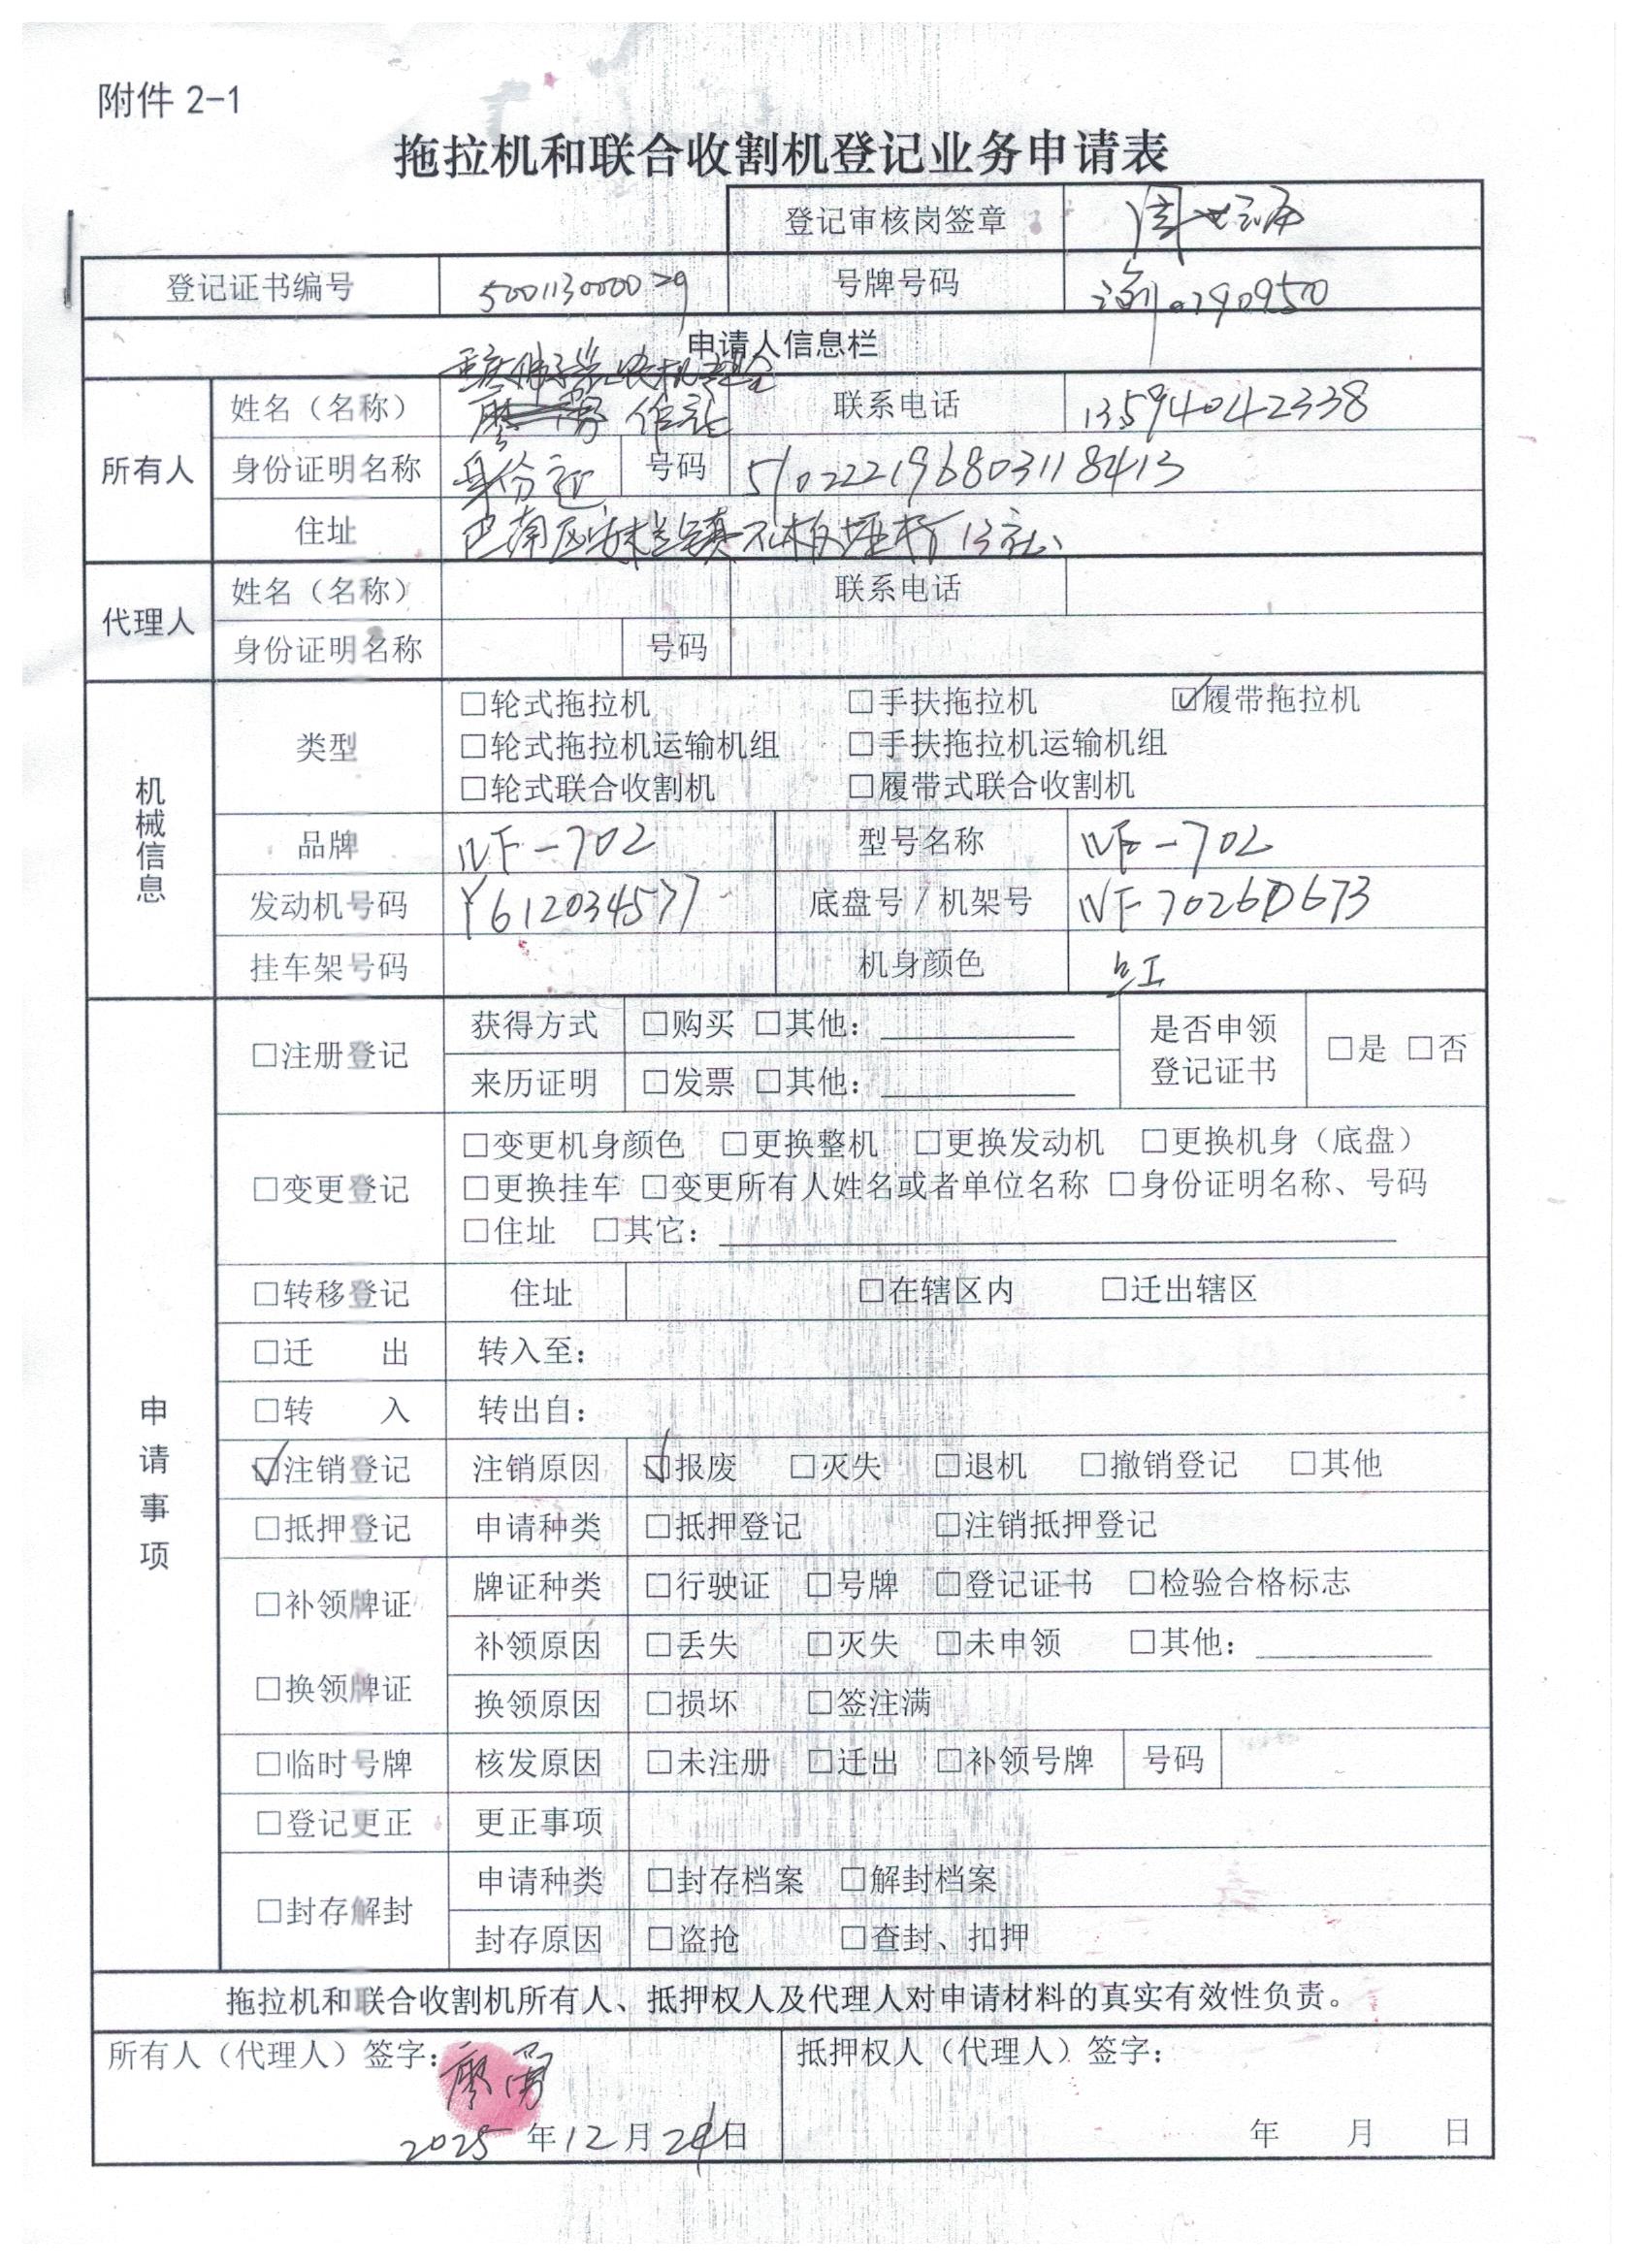 附件 2-1
拖拉机和联合收割机登记业务申请表
登记审核岗签章
登记证书编号 500113000029 号牌号码 渝0290950
申请人信息栏
所有人 姓名（名称） 作社 联系电话 13594042338
身份证明名称 身份证 号码 510222196803118413
住址 巴南区安澜镇石板垭村13社
代理人 姓名（名称） 联系电话
身份证明名称 号码
机械信息 类型 □轮式拖拉机 □手扶拖拉机 ☑履带拖拉机
□轮式拖拉机运输机组 □手扶拖拉机运输机组
□轮式联合收割机 □履带式联合收割机
品牌 NF-702 型号名称 NF-702
发动机号码 Y612034577 底盘号/机架号 NF70260673
挂车架号码 机身颜色 红
申请事项 □注册登记 获得方式 □购买 □其他： 是否申领登记证书 □是 □否
来历证明 □发票 □其他：
□变更登记 □变更机身颜色 □更换整机 □更换发动机 □更换机身（底盘）
□更换挂车 □变更所有人姓名或者单位名称 □身份证明名称、号码
□住址 □其它：
□转移登记 住址 □在辖区内 □迁出辖区
□迁 出 转入至：
□转 入 转出自：
☑注销登记 注销原因 ☑报废 □灭失 □退机 □撤销登记 □其他
□抵押登记 申请种类 □抵押登记 □注销抵押登记
□补领牌证 牌证种类 □行驶证 □号牌 □登记证书 □检验合格标志
补领原因 □丢失 □灭失 □未申领 □其他：
□换领牌证 换领原因 □损坏 □签注满
□临时号牌 核发原因 □未注册 □迁出 □补领号牌 号码
□登记更正 更正事项
□封存解封 申请种类 □封存档案 □解封档案
封存原因 □盗抢 □查封、扣押
拖拉机和联合收割机所有人、抵押权人及代理人对申请材料的真实有效性负责。
所有人（代理人）签字：廖勇 抵押权人（代理人）签字：
2025 年 12 月 24 日 年 月 日